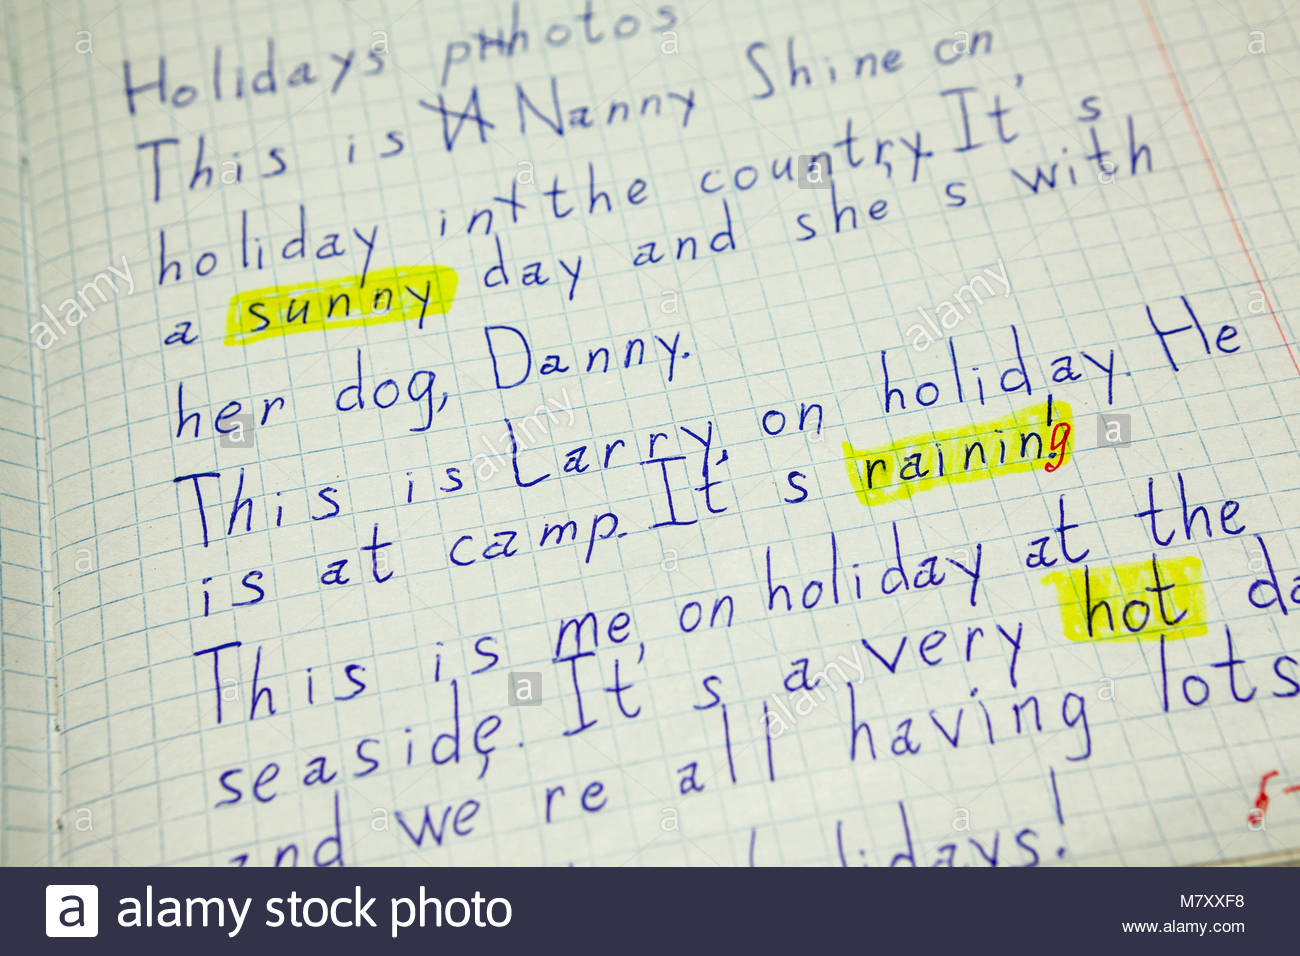 Holidays photos
This is Nanny Shine on
holiday in the country. It's
a sunny day and she's with
her dog, Danny.
This is Larry, on holiday. He
is at camp. It's raining!
This is me, on holiday at the
seaside. It's a very hot da
and we're all having lots
days!
5-
alamy
alamy stock photo
M7XXF8
www.alamy.com